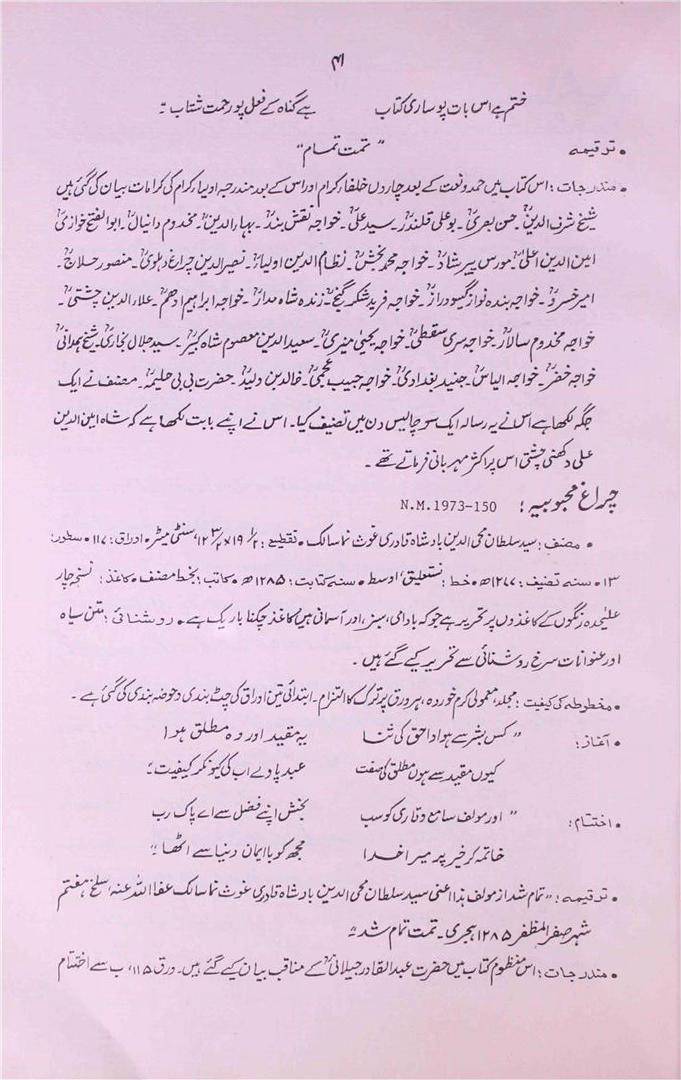 ۴۱
ختم ہے اس بات پو ساری کتاب ہے گناہ کے فعل پو رحمت شتاب ۔"
• ترقیمہ " تمت تمام "
• مندرجات : اس کتاب میں حمد و نعت کے بعد چاردں خلفاء کرام اور اس کے بعد مندرجہ اولیاء کرام کی کرامات بیان کی گئی ہیں
شیخ شرف الدینؒ۔ حسن بصریؒ۔ بوعلی قلندرؒ۔ سید علیؒ۔ خواجہ نقش بندؒ۔ بہار الدینؒ۔ مخدوم دانیالؒ۔ ابو الفتح
امین الدین اعلیٰؒ۔ خواجہ محمد بخشؒ۔ نظام الدین اولیاءؒ۔ نصیر الدین چراغ دہلویؒ۔ منصور حلاجؒ۔
امیر خسروؒ۔ خواجہ بندہ نواز گیسو درازؒ۔ خواجہ فرید شکر گنجؒ۔ زندہ شاہ مدارؒ۔ خواجہ ابراہیم ادھمؒ۔ علاء الدین چشتیؒ۔
خواجہ مخدوم سالارؒ۔ خواجہ سری سقطیؒ۔ خواجہ یحییٰ منیریؒ۔ سعید الدین معصوم شاہ کبیرؒ۔ سید جلال بخاریؒ۔ شیخ ہمدانیؒ
خواجہ خضرؒ۔ خواجہ الیاسؒ۔ جنید بغدادیؒ۔ خواجہ حبیب عجمیؒ۔ خالد بن ولیدؒ۔ حضرت بی بی حلیمہؓ۔ مصنف نے ایک
جگہ لکھا ہے اس نے یہ رسالہ ایک سو چالیس دن میں تصنیف کیا۔ اس نے اپنے بابت لکھا ہے کہ شاہ امین الدین
علی دکھنی چشتی اس پر اکثر مہربانی فرماتے تھے ۔
چراغ محبوبیہ : N.M.1973-150
• مصنف : سید سلطان محی الدین بادشاہ قادری غوث نما سالک • تقطیع : ۱۹ ۱/۲ × ۱۲ ۳/۴، سنٹی میٹر • اوراق : ۱۱۷ • سطور :
۱۳ • سنہ تصنیف : ۱۲۷۷ھ • خط : نستعلیق، اوسط • سنہ کتابت : ۱۲۸۵ھ • کاتب : بخط مصنف • کاغذ : نسخہ چار
علیحدہ رنگوں کے کاغذوں پر تحریر ہے جو کہ بادامی، سبز، اور آسمانی ہیں کاغذ چکنا باریک ہے • روشنائی : متن سیاہ
اور عنوانات سرخ روشنائی سے تحریر کیے گئے ہیں ۔
• مخطوطہ کی کیفیت : مجلد، معمولی کرم خوردہ، ہر ورق پر ترک کا التزام ۔ ابتدائی تین اوراق کی چٹ بندی و حوضہ بندی کی گئی ہے ۔
• آغاز : " کس بشر سے ہو ادا حق کی ثنا یہ مقید اور وہ مطلق ہوا
کیوں مقید سے ہوں مطلق کی صفت عبد پادے اب کی کیونکر کیفیت "
• اختتام : " اور مولف سامع و قاری کو سب بخش اپنے فضل سے اے پاک رب
خاتمہ کر خیر پر میرا خدا مجھ کو با ایمان دنیا سے اٹھا "
• ترقیمہ : " تمام شد از مولف ہذا اعنی سید سلطان محی الدین بادشاہ قادری غوث نما سالک عفا اللہ عنہ، سلخ ہفتم
شہر صفر المظفر ۱۲۸۵ ہجری ۔ تمت تمام شد "
• مندرجات : اس منظوم کتاب میں حضرت عبدالقادر جیلانیؒ کے مناقب بیان کیے گئے ہیں ۔ ورق ۱۱۵، ب سے اختتام